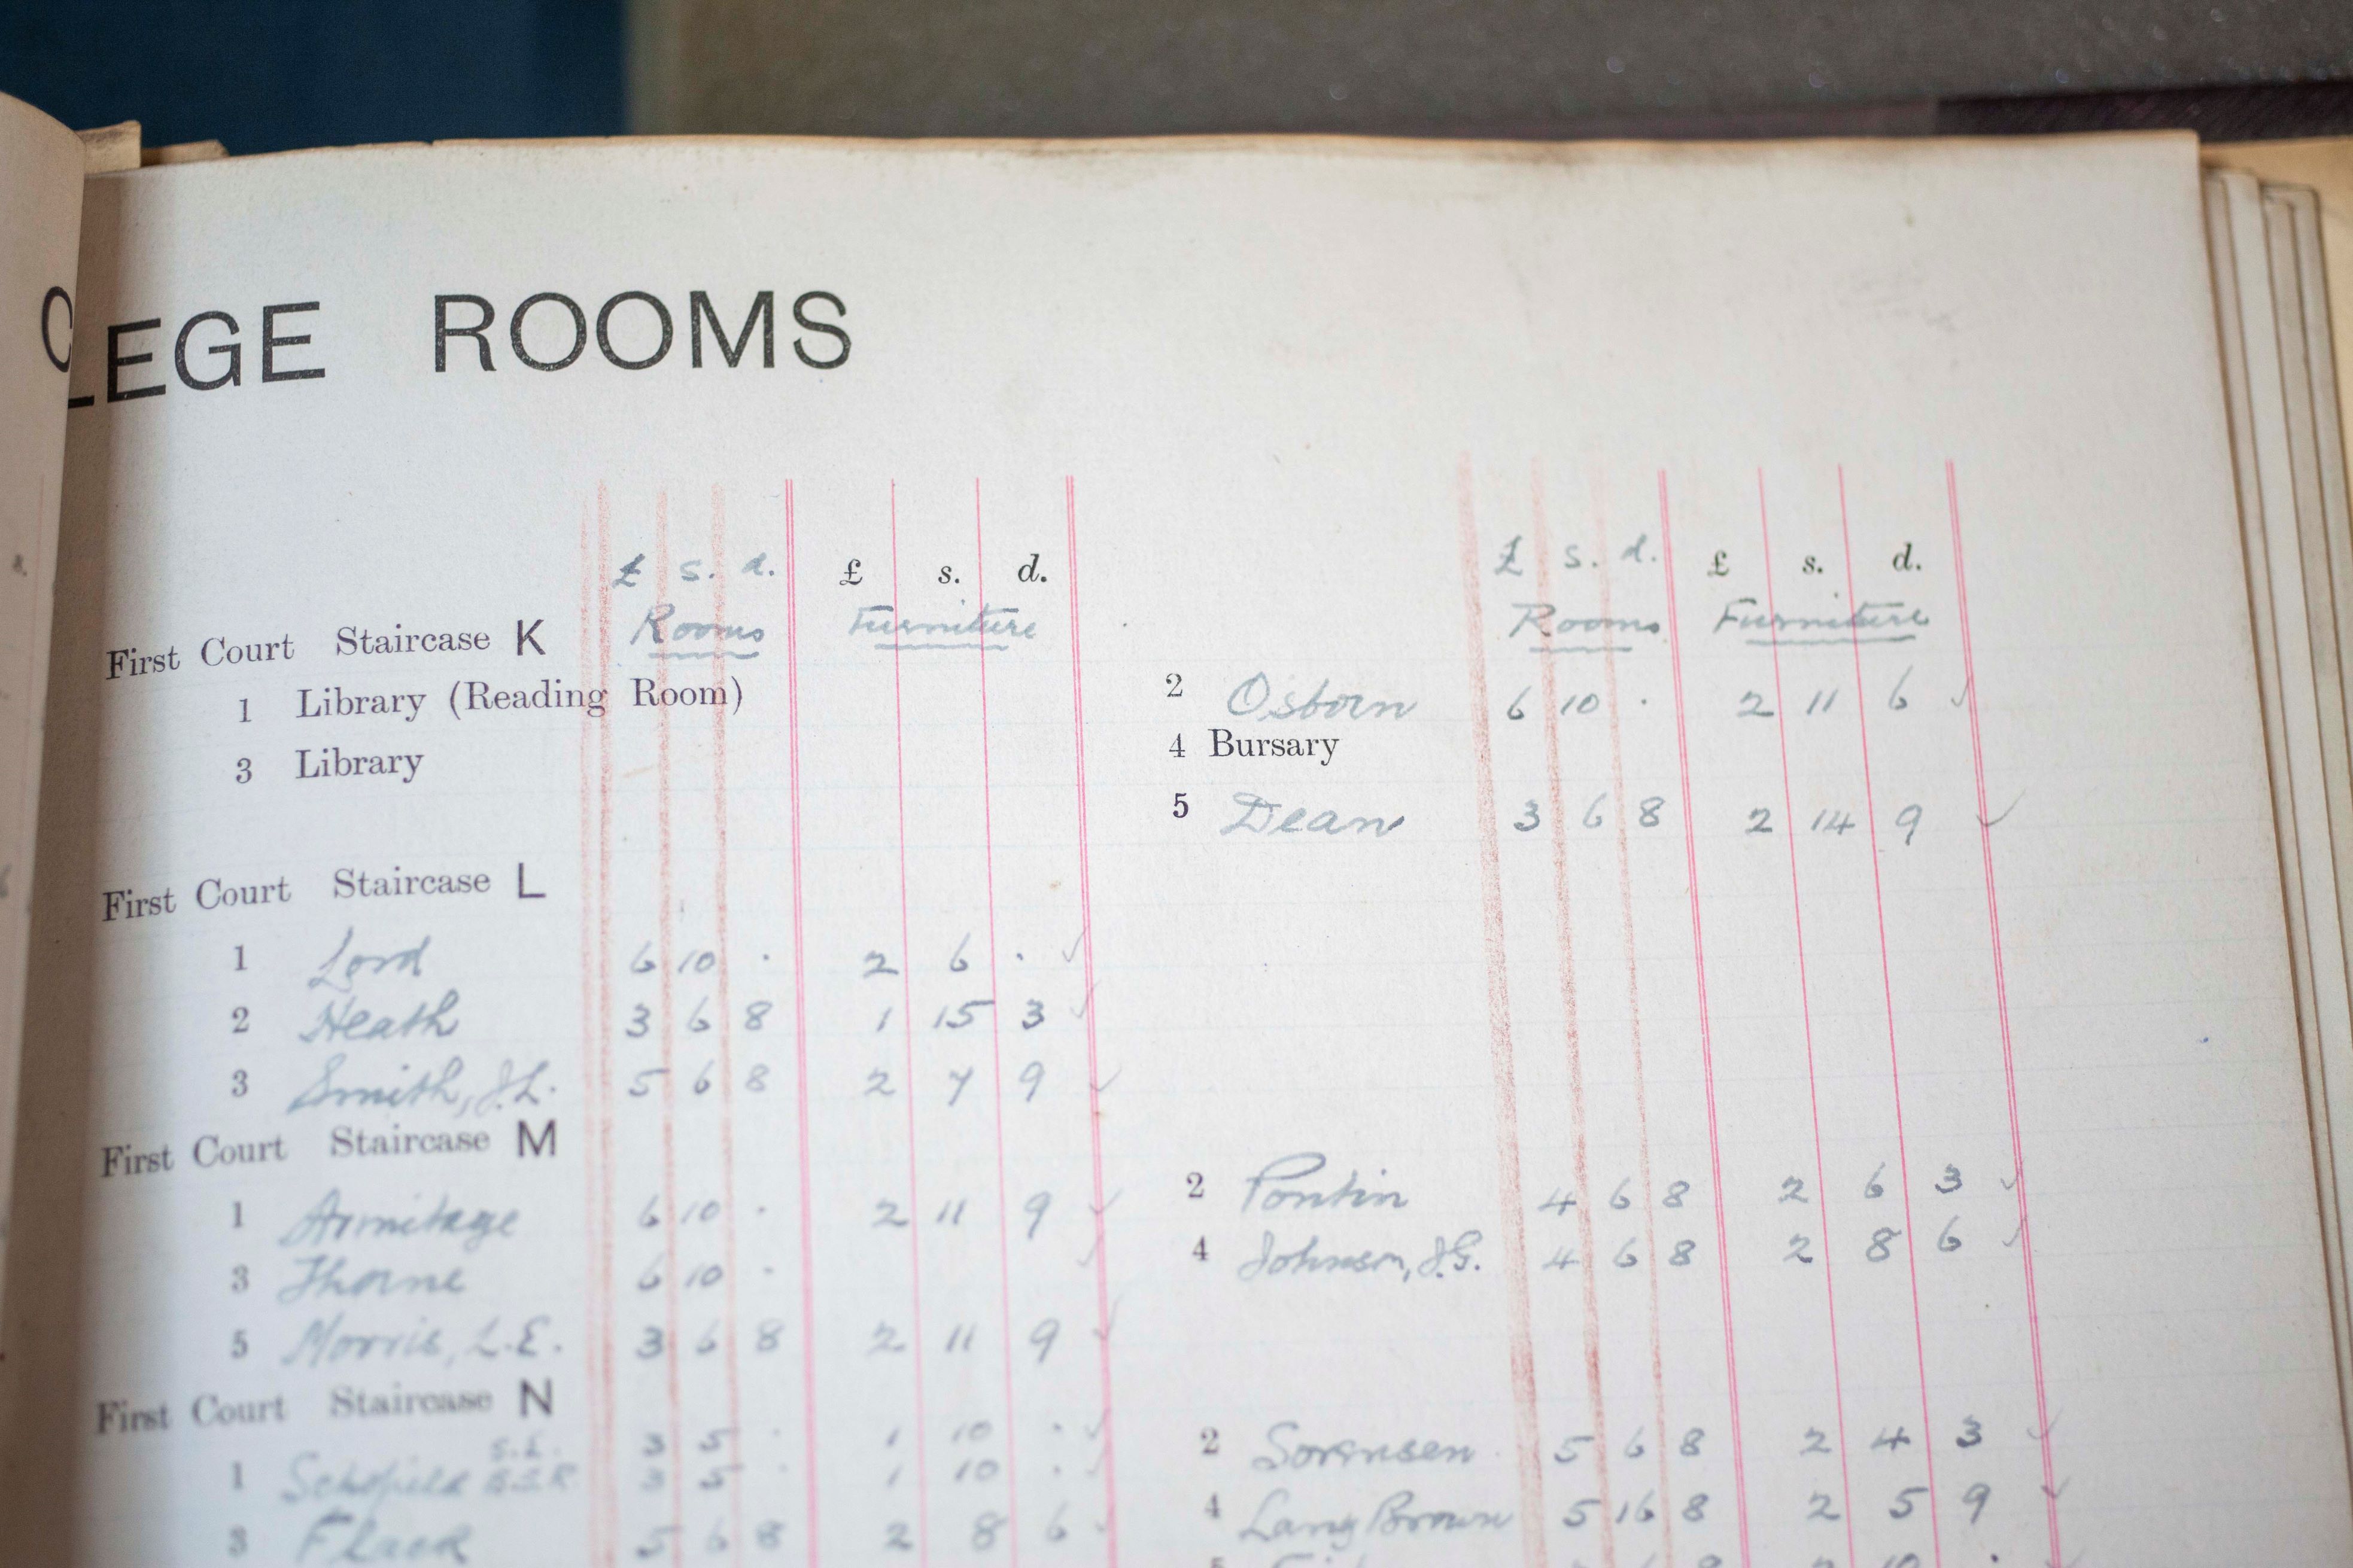 LEGE ROOMS
£ s. d. £ s. d.
Rooms Furniture
First Court Staircase K
1 Library (Reading Room)
3 Library
First Court Staircase L
1 Lord 6 10 · 2 6 · ✓
2 Heath 3 6 8 1 15 3 ✓
3 Smith, J.L. 5 6 8 2 7 9 ✓
First Court Staircase M
1 Armitage 6 10 · 2 11 9 ✓
3 Thorne 6 10 · ✓
5 Morris, L.E. 3 6 8 2 11 9 ✓
First Court Staircase N
3 5 · 1 10 · ✓
1 Schofield 3 5 · 1 10 · ✓
3 Flack 5 6 8 2 8 6 ✓
£ s. d. £ s. d.
Rooms Furniture
2 Osborn 6 10 · 2 11 6 ✓
4 Bursary
5 Dean 3 6 8 2 14 9 ✓
2 Pontin 4 6 8 2 6 3 ✓
4 Johnson, J.G. 4 6 8 2 8 6 ✓
2 Sorensen 5 6 8 2 4 3 ✓
4 Lang Brown 5 16 8 2 5 9 ✓